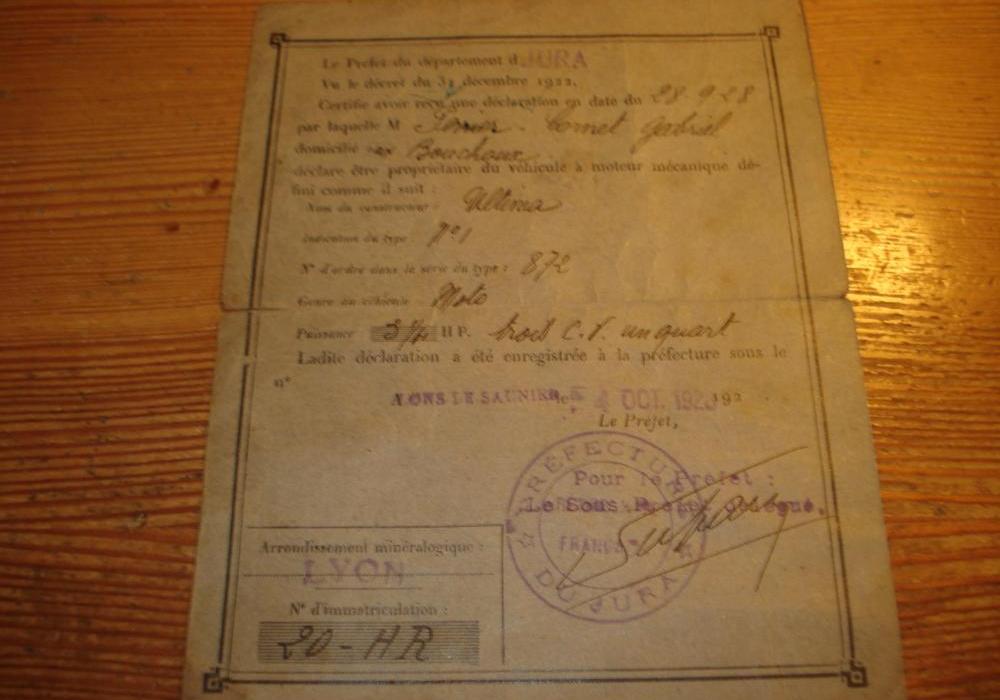 Le Préfet du département d JURA
Vu le décret du 31 décembre 1922,
Certifie avoir reçu une déclaration en date du 28-9-28
par laquelle M Cornet Gabriel
domicilié Bouchoux
déclare être propriétaire du véhicule à moteur mécanique dé-
fini comme il suit :
Nom du constructeur : Ultima
Indication du type : N° 1
N° d'ordre dans la série du type : 872
Genre du véhicule Moto
Puissance 3 1/4 HP. trois C.V. un quart
Ladite déclaration a été enregistrée à la préfecture sous le
n°
A LONS LE SAUNIER le 4 OCT. 192
Le Préfet,
Pour le Préfet :
Le Sous-Préfet délégué,
PRÉFECTURE DU JURA
FRANÇAISE
Arrondissement minéralogique :
LYON
N° d'immatriculation :
20-HR